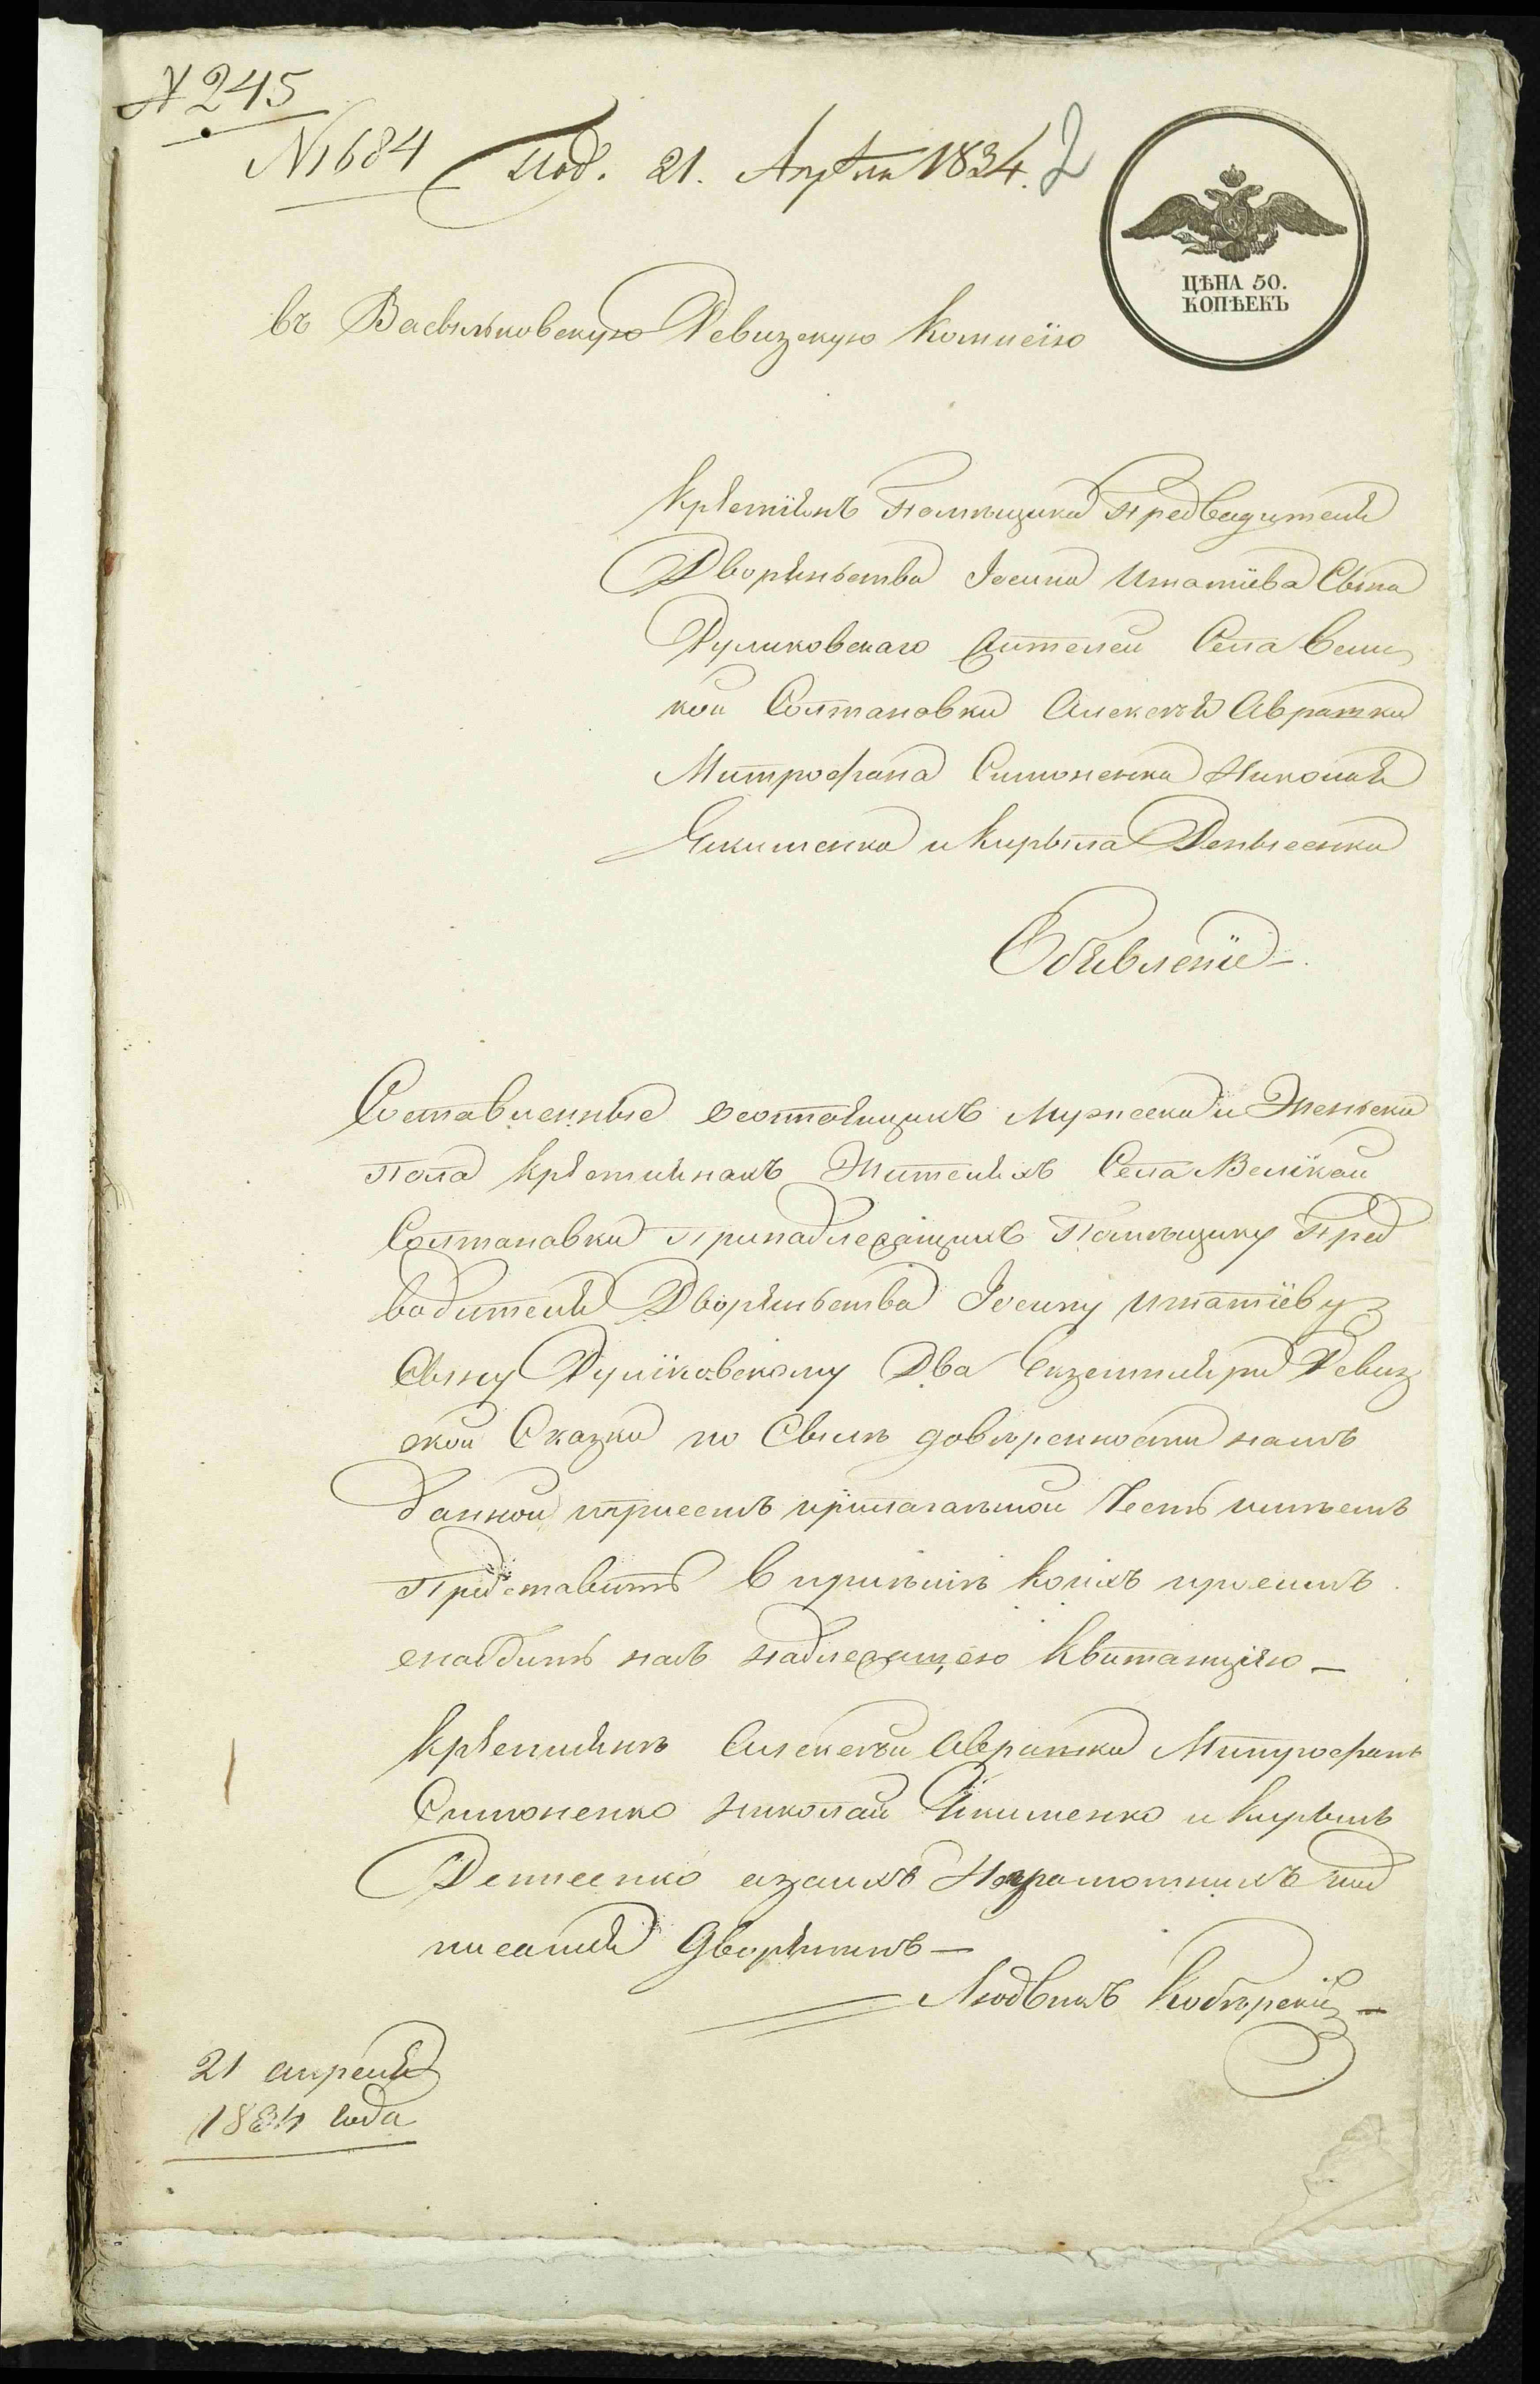 № 245
№ 1684 Под. 21. Апрѣля 1834. 2
ЦѢНА 50.
КОПѢЕКЪ
въ Васыльковскую Ревизскую Комисїю
Крѣстіянъ Помѣщика Предводителя
Дворянства Іосипа Игнатіева Сына
Руликовскаго жителей Села Вели
кой Солтановки Алексѣя Авратки
Митрофана Симоненка Николая
Якименка и Кирыла Денысенка
Объявленіе
Составленные о состоящихъ мужеска и Женска
пола Крѣстіянахъ Жителяхъ Села Великой
Солтановки принадлежащихъ Помѣщику Пред
водителя Дворянства Іосипу Игнатіеву
Сыну Руликовскому Два Екземпляра Ревиз
ской Сказки по Сылѣ довѣренности намъ
данной присемъ прилагаемой Честь имѣемъ
Представить в приѣмѣ коихъ просимъ
снабдить насъ надлежащею Квитанцією
Крѣстіяне Алексѣй Авратка Митрофанъ
Симоненко Николай Якименко и Кирылъ
Денисенко а за ихъ Неграмотныхъ под
писался Дворянинъ
Людвикъ Кобѣрскій
21 апреля
1834 года